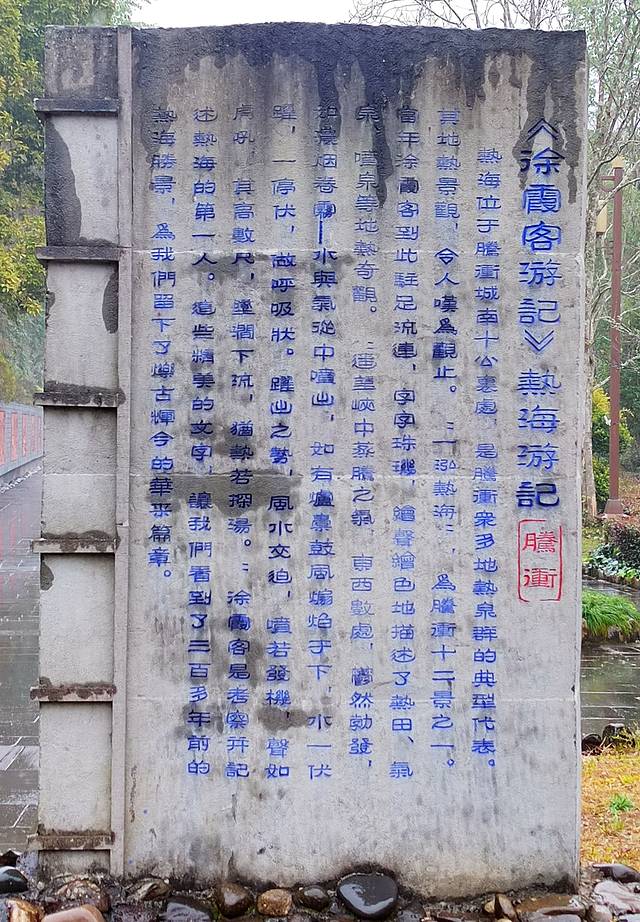 《徐霞客游記》熱海游記
騰衝
熱海位于騰衝城南十公裏處，是騰衝衆多地熱泉群的典型代表。
其地熱景觀，令人嘆爲觀止。“一泓熱海”，爲騰衝十二景之一。
當年徐霞客到此駐足流連，字字珠璣，繪聲繪色地描述了熱田、氣
泉、噴泉等地熱奇觀。“遥望峽中蒸騰之氣，東西數處，鬱然勃發，
如濃烟卷霧—水與氣從中噴出，如有爐橐鼓風煽焰于下，水一伏
躍，一停伏，做呼吸狀。躍出之勢，風水交迫，噴若發機，聲如
虎吼，其高數尺，墜澗下流，猶熱若探湯。”徐霞客是考察并記
述熱海的第一人。這些精美的文字，讓我們看到了三百多年前的
熱海勝景，爲我們留下了爍古輝今的華彩篇章。